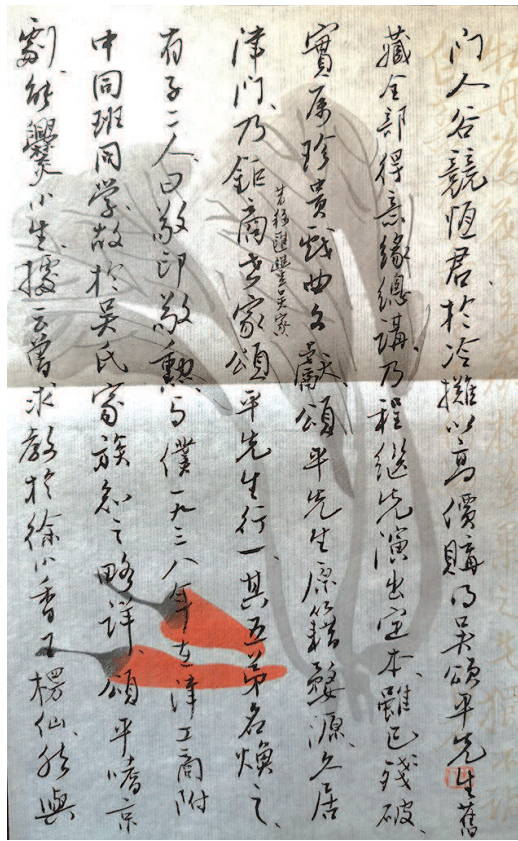 门人谷競恆君於冷攤以高價購得吴頌平先生舊
藏全部得意緣總講乃程繼先演出定本、雖已殘破、
實属珍贵戲曲文獻、頌平先生原籍婺源、久居
津门、乃鉅商世家頌平先生行一、其五弟名焕之、
有子二人曰敬印敬勳、与僕一九三八年在津工商附
中同班同学、故於吴氏家族知之略詳、頌平嗜京
劇、能爨小生、據云曾求教於徐小香王楞仙、與